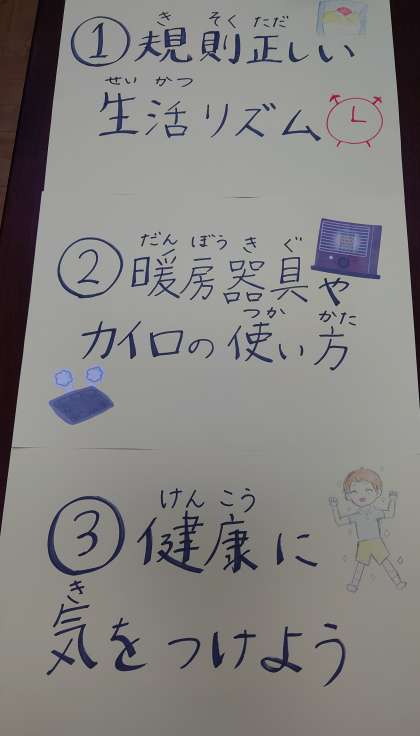 き そく ただ
①規則正しい
せい かつ
生活リズム
だん ぼう き ぐ
②暖房器具や
つか かた
カイロの使い方
けん こう
③健康に
き
気をつけよう